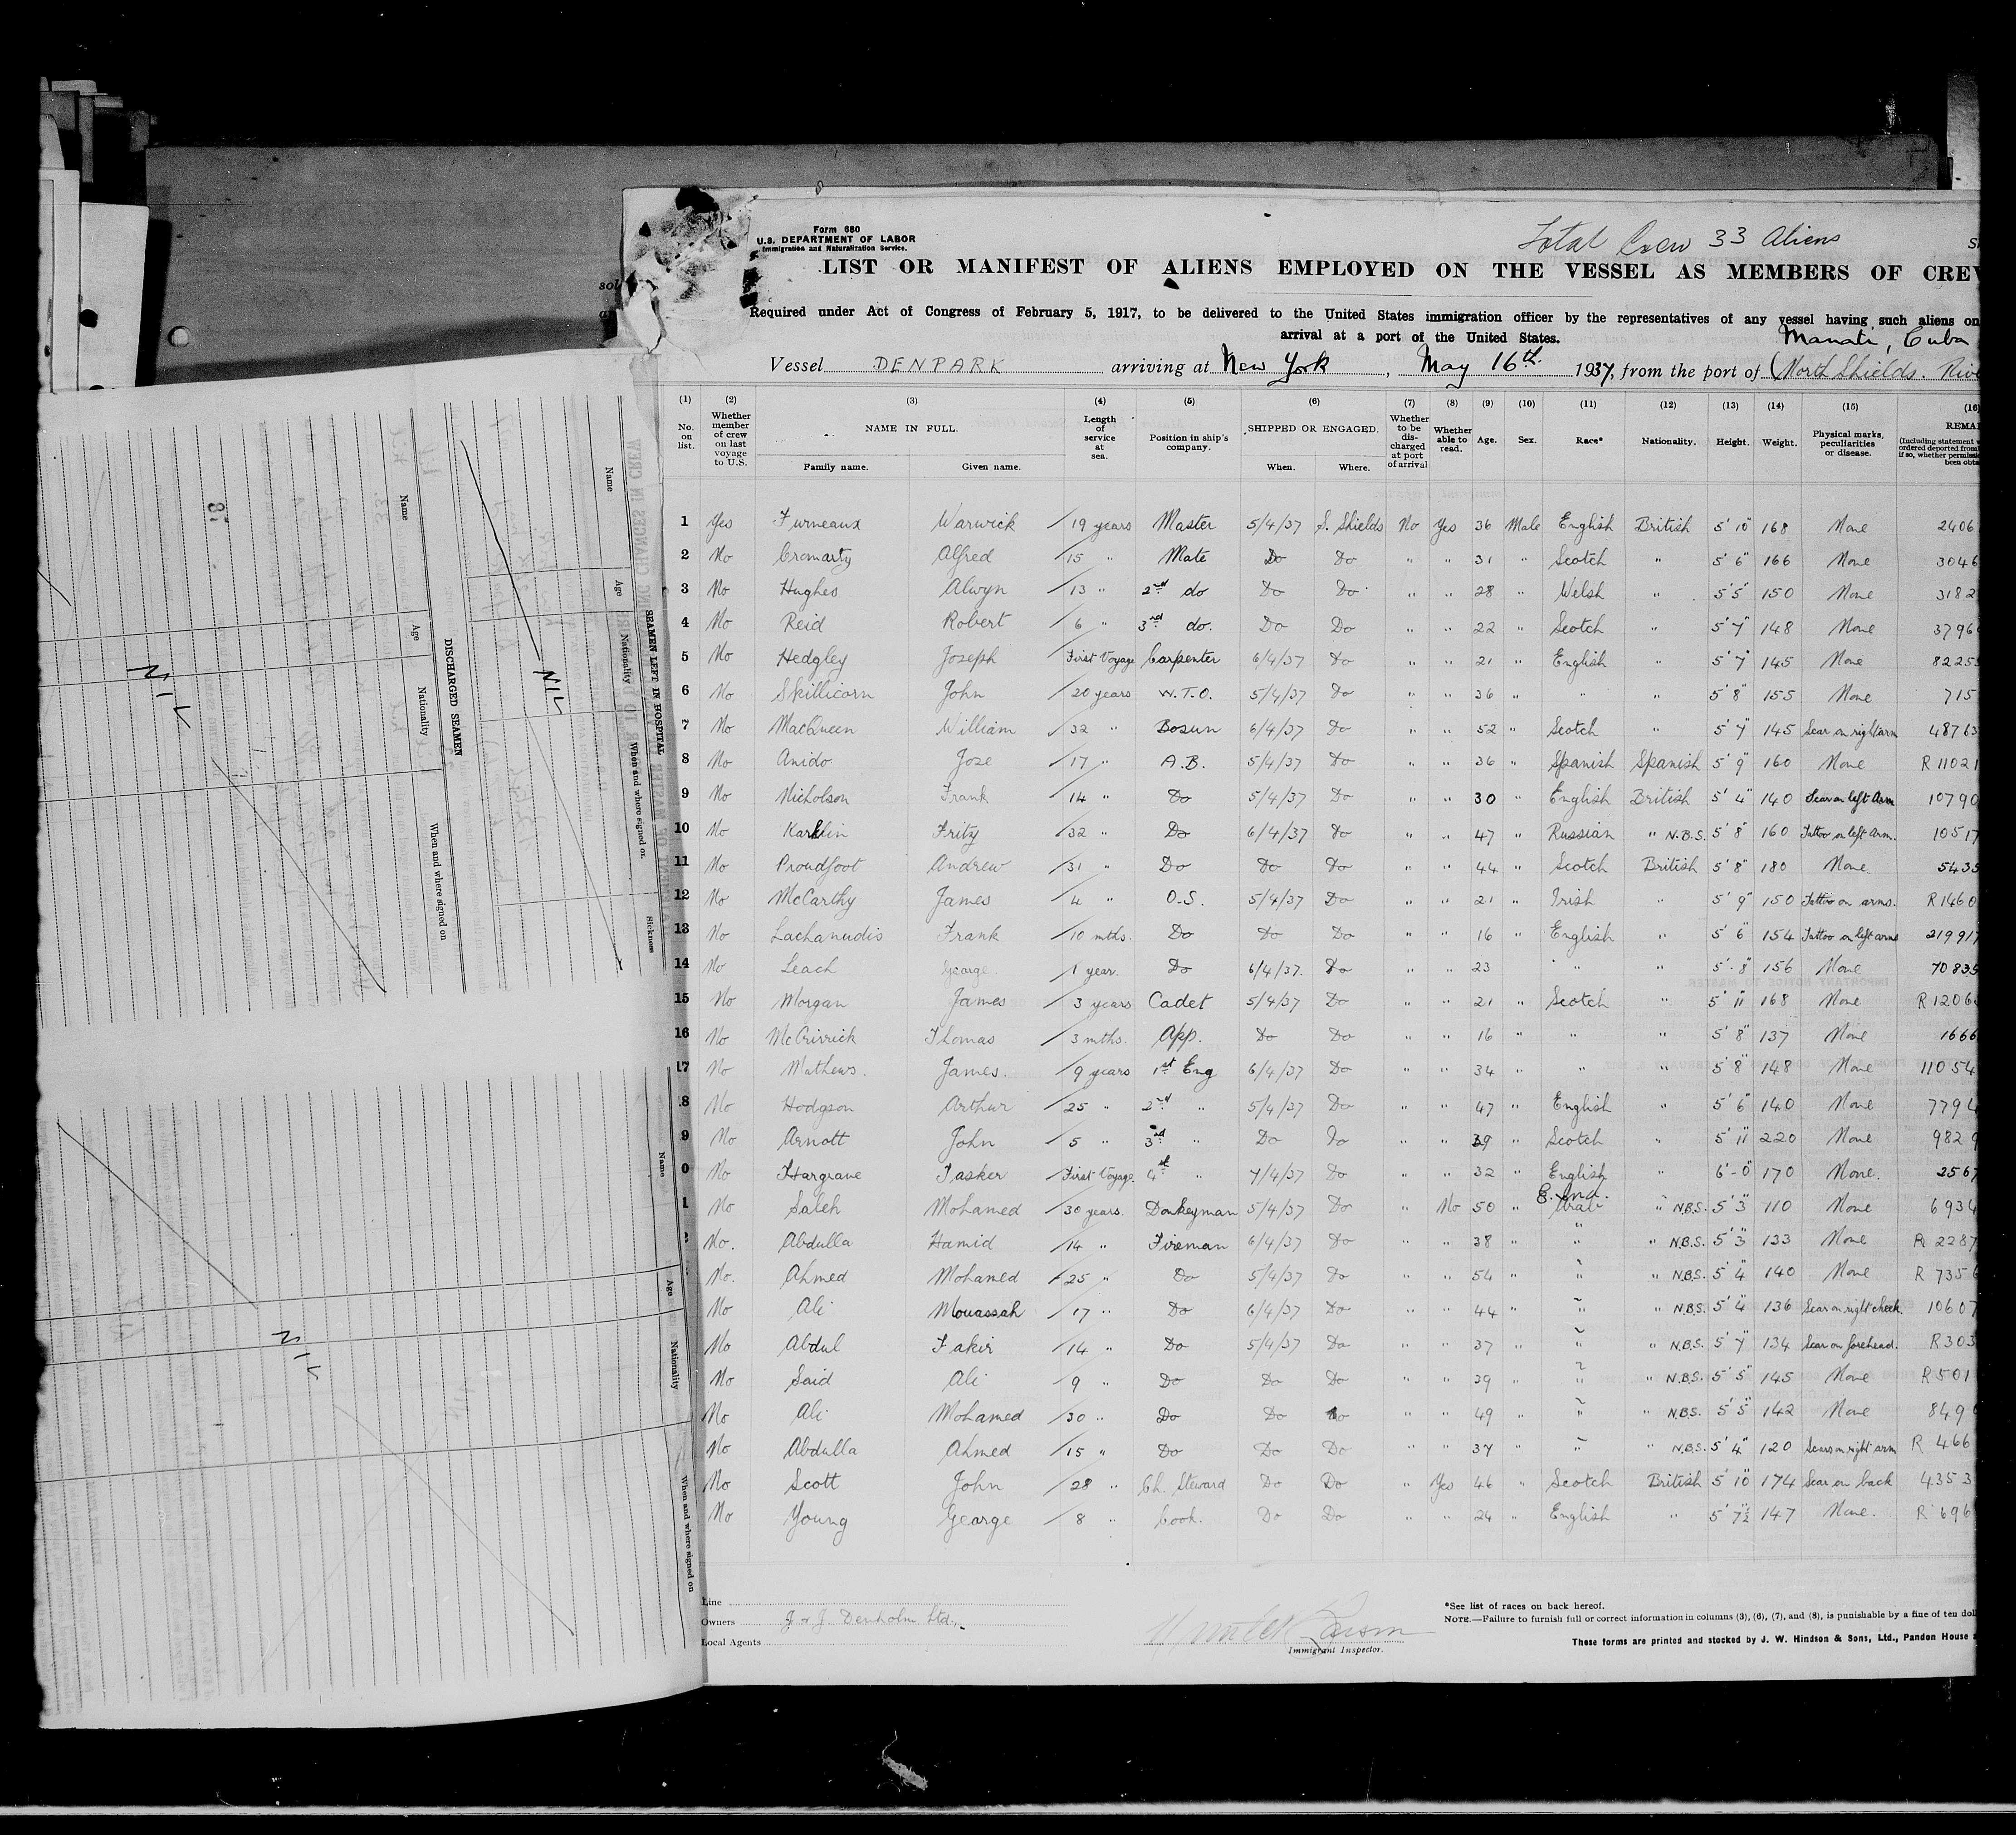 Form 680
U.S. DEPARTMENT OF LABOR
Immigration and Naturalization Service.
Total Crew 33 Aliens
LIST OR MANIFEST OF ALIENS EMPLOYED ON THE VESSEL AS MEMBERS OF CREW
Required under Act of Congress of February 5, 1917, to be delivered to the United States immigration officer by the representatives of any vessel having such aliens on
arrival at a port of the United States.
Manati, Cuba
Vessel DENPARK arriving at New York, May 16th. 1937, from the port of (North Shields.
(1) (2) (3) (4) (5) (6) (7) (8) (9) (10) (11) (12) (13) (14) (15) (16)
No. on list. Whether member of crew on last voyage to U.S. NAME IN FULL. Family name. Given name. Length of service at sea. Position in ship's company. SHIPPED OR ENGAGED. When. Where. Whether to be discharged at port of arrival Whether able to read. Age. Sex. Race* Nationality. Height. Weight. Physical marks, peculiarities or disease.
1 Yes Furneaux Warwick 19 years Master 5/4/37 S. Shields No Yes 36 Male English British 5' 10" 168 None 2406
2 No Cromarty Alfred 15 " Mate Do Do " " 31 " Scotch " 5' 6" 166 None 3046
3 No Hughes Alwyn 13 " 2nd do Do Do " " 28 " Welsh " 5' 5" 150 None 3182
4 No Reid Robert 6 " 3rd do. Do Do " " 22 " Scotch " 5' 7" 148 None 3796
5 No Hedgley Joseph First Voyage Carpenter 6/4/37 Do " " 21 " English " 5' 7" 145 None 8225
6 No Skillicorn John 20 years W.T.O. 5/4/37 Do " " 36 " " " 5' 8" 155 None 715
7 No MacQueen William 32 " Bosun 6/4/37 Do " " 52 " Scotch " 5' 7" 145 Scar on right arm 48763
8 No Anido Jose 17 " A.B. 5/4/37 Do " " 36 " Spanish Spanish 5' 9" 160 None R 11021
9 No Nicholson Frank 14 " Do 5/4/37 Do " " 30 " English British 5' 4" 140 Scar on left Arm 10790
10 No Karklin Fritz 32 " Do 6/4/37 Do " " 47 " Russian " N.B.S. 5' 8" 160 Tattoo on left arm. 10517
11 No Proudfoot Andrew 31 " Do Do Do " " 44 " Scotch British 5' 8" 180 None. 5435
12 No McCarthy James 4 " O.S. 5/4/37 Do " " 21 " Irish " 5' 9" 150 Tattoo on arms. R 1460
13 No Lachanudis Frank 10 mths. Do Do Do " " 16 " English " 5' 6" 154 Tattoo on left arm 219917
14 No Leach George 1 year. Do 6/4/37. Do " " 23 " " 5' 8" 156 None 70835
15 No Morgan James 3 years Cadet 5/4/37 Do " " 21 " Scotch " 5' 11" 168 None R 1206
16 No McCrirrick Thomas 3 mths. App. Do Do " " 16 " " " 5' 8" 137 None 1666
17 No Mathews. James. 9 years 1st Eng 6/4/37 Do " " 34 " " " 5' 8" 148 None 11054
18 No Hodgson Arthur 25 " 2nd " 5/4/37 Do " " 47 " English " 5' 6" 140 None 7794
9 No Arnott John 5 " 3rd " Do Do " " 39 " Scotch " 5' 11" 220 None 9829
0 No Hargrave Tasker First Voyage. 4th " 7/4/37 Do " " 32 " English " 6'-0" 170 None. 2567
No Saleh Mohamed 30 years. Donkeyman 5/4/37 Do " No 50 " Arab " N.B.S. 5' 3" 110 None 6934
No. Abdulla Hamid 14 " Fireman 6/4/37 Do " " 38 " " " N.B.S. 5' 3" 133 None R 2287
No. Ahmed Mohamed 25 " Do 5/4/37 Do " " 54 " " " N.B.S. 5' 4" 140 None R 735
No Ali Mouassah 17 " Do 6/4/37 Do " " 44 " " " N.B.S. 5' 4" 136 Scar on right cheek. 10607
No Abdul Fakir 14 " Do 5/4/37 Do " " 37 " " " N.B.S. 5' 7" 134 Scar on forehead. R 303
No Said Ali 9 " Do Do Do " " 39 " " " N.B.S. 5' 5" 145 None R 501
No Ali Mohamed 30 " Do Do Do " " 49 " " " N.B.S. 5' 5" 142 None 849
No Abdulla Ahmed 15 " Do Do Do " " 37 " " " N.B.S. 5' 4" 120 Scars on right arm R 466
No Scott John 28 " Ch. Steward Do Do " Yes 46 " Scotch British 5' 10" 174 Scar on back 4353
No Young George 8 " Cook. Do Do " " 24 " English " 5' 7½" 147 None. R 696
Line
Owners J & J. Denholm Ltd.
Local Agents
Immigrant Inspector.
*See list of races on back hereof.
NOTE.—Failure to furnish full or correct information in columns (3), (6), (7), and (8), is punishable by a fine of ten
These forms are printed and stocked by J. W. Hindson & Sons, Ltd., Pandon House
SEAMEN LEFT IN HOSPITAL
Name Age Nationality When and where signed on. Sickness
NIL
DISCHARGED SEAMEN
Name Age Nationality When and where signed on
NIL
Name Age Nationality When and where signed on
NIL